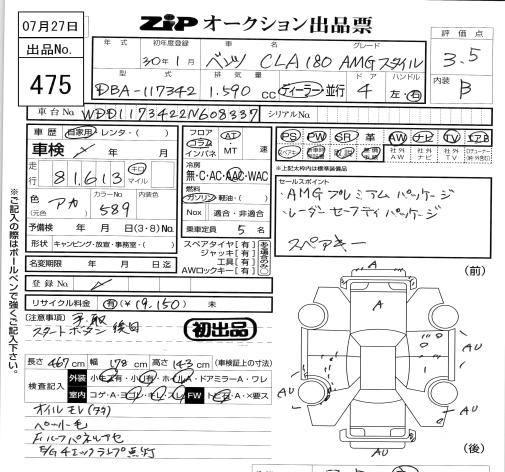 07月27日
出品No.
475
ZiP オークション出品票
年式 初年度登録 車名 グレード
30年1月 ベンツ CLA180 AMGスタイル
型式 排気量 ドア ハンドル
DBA-117342 1.590cc ディーラー・並行 4 左・右
評価点
3.5
内装
B
車台No. WDD1173422N608337 シリアルNo.
車歴 自家用・レンタ・( )
車検
走行 81,613 キロ マイル
色(元色) アカ カラーNo 589 内装色
予備検 年 月 日(3・8)No.
形状 キャンピング・放宣・事務室・( )
名変期限 年 月 日迄
登録No.
リサイクル料金 有(¥19,150) 未
フロア コラム インパネ
AT・MT 速
冷房
無・C・AC・AAC・WAC
燃料
ガソリン・軽油・( )
Nox 適合・非適合
乗車定員 5 名
スペアタイヤ[有]
ジャッキ[有]
工具[有]
AWロックキー[有]
PS PW SR 革 AW ナビ TV エアB
社外AW 社外ナビ 社外TV
※上記太枠内は標準装備品
セールスポイント
・AMGプレミアムパッケージ
・レーダーセーフティパッケージ
スペアキー
(注意事項) 手取
スタートボタン 後日
初出品
長さ 467cm 幅 178cm 高さ 143cm (車検証上の寸法)
検査記入
外装 小キズ有・小凹有・ホイルA・ドアミラーA・ワレ
室内 コゲ・A・ヨゴレ・キレ・スレ FW トビ石・A・×要ス
オイルモレ(タタ)
E/Gチェックランプ点灯
※ご記入の際はボールペンで強くご記入下さい。
(前)
A
A
AU
AU
AU
AU
(後)